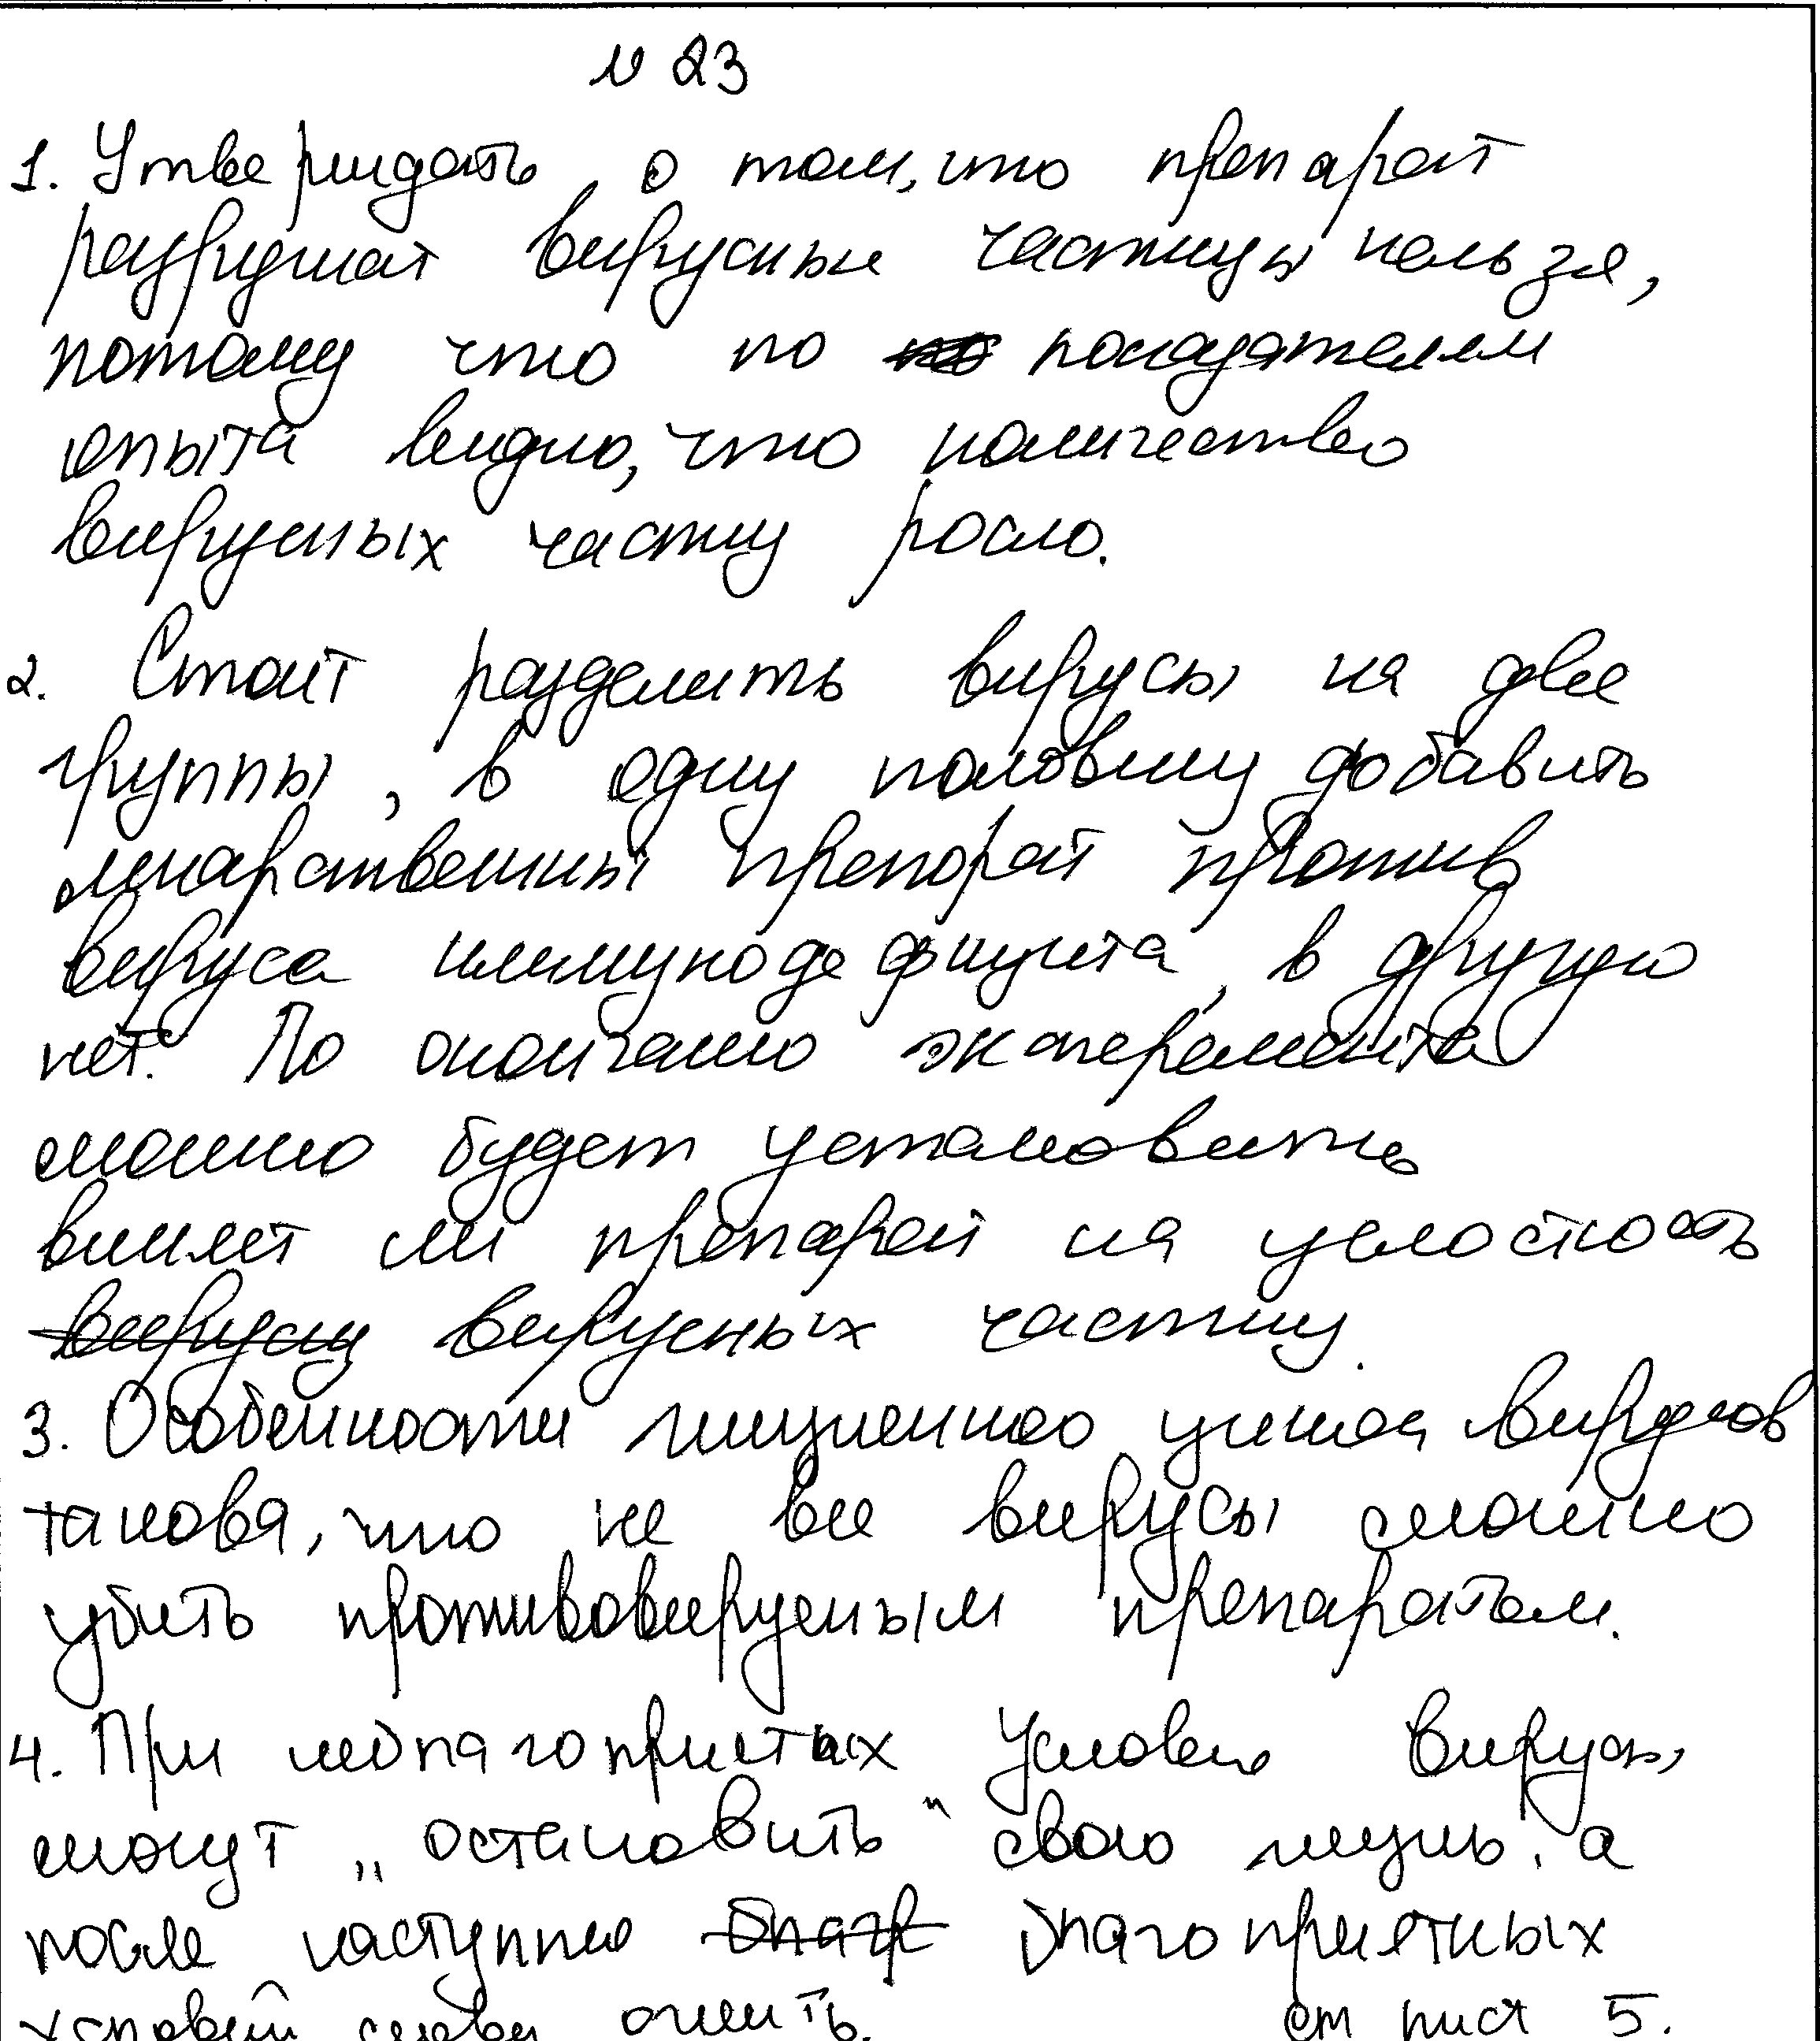 N 23
1. Утверждать о том, что препарат
разрушат вирусные частицы нельзя,
потому что по показателем
опыта видно, что количество
вирусных частиц росло.
2. Стоит разделить вирусы на две
группы, в одну половину добавить
лекарственный препорат против
вируса иммунодефицита, в другую
нет. По окончанию эксперемента
можно будет установить
влияет ли препарат на целостность
вирусных частиц.
3. Особенности жизненного цикла вирусов
такова, что не все вирусы можно
убить противовирусным препаратам.
4. При неблагоприятых условия вирусы
могут „остановить" свою жизнь, а
после наступление благоприятных
условий снова ожить. см лист 5.